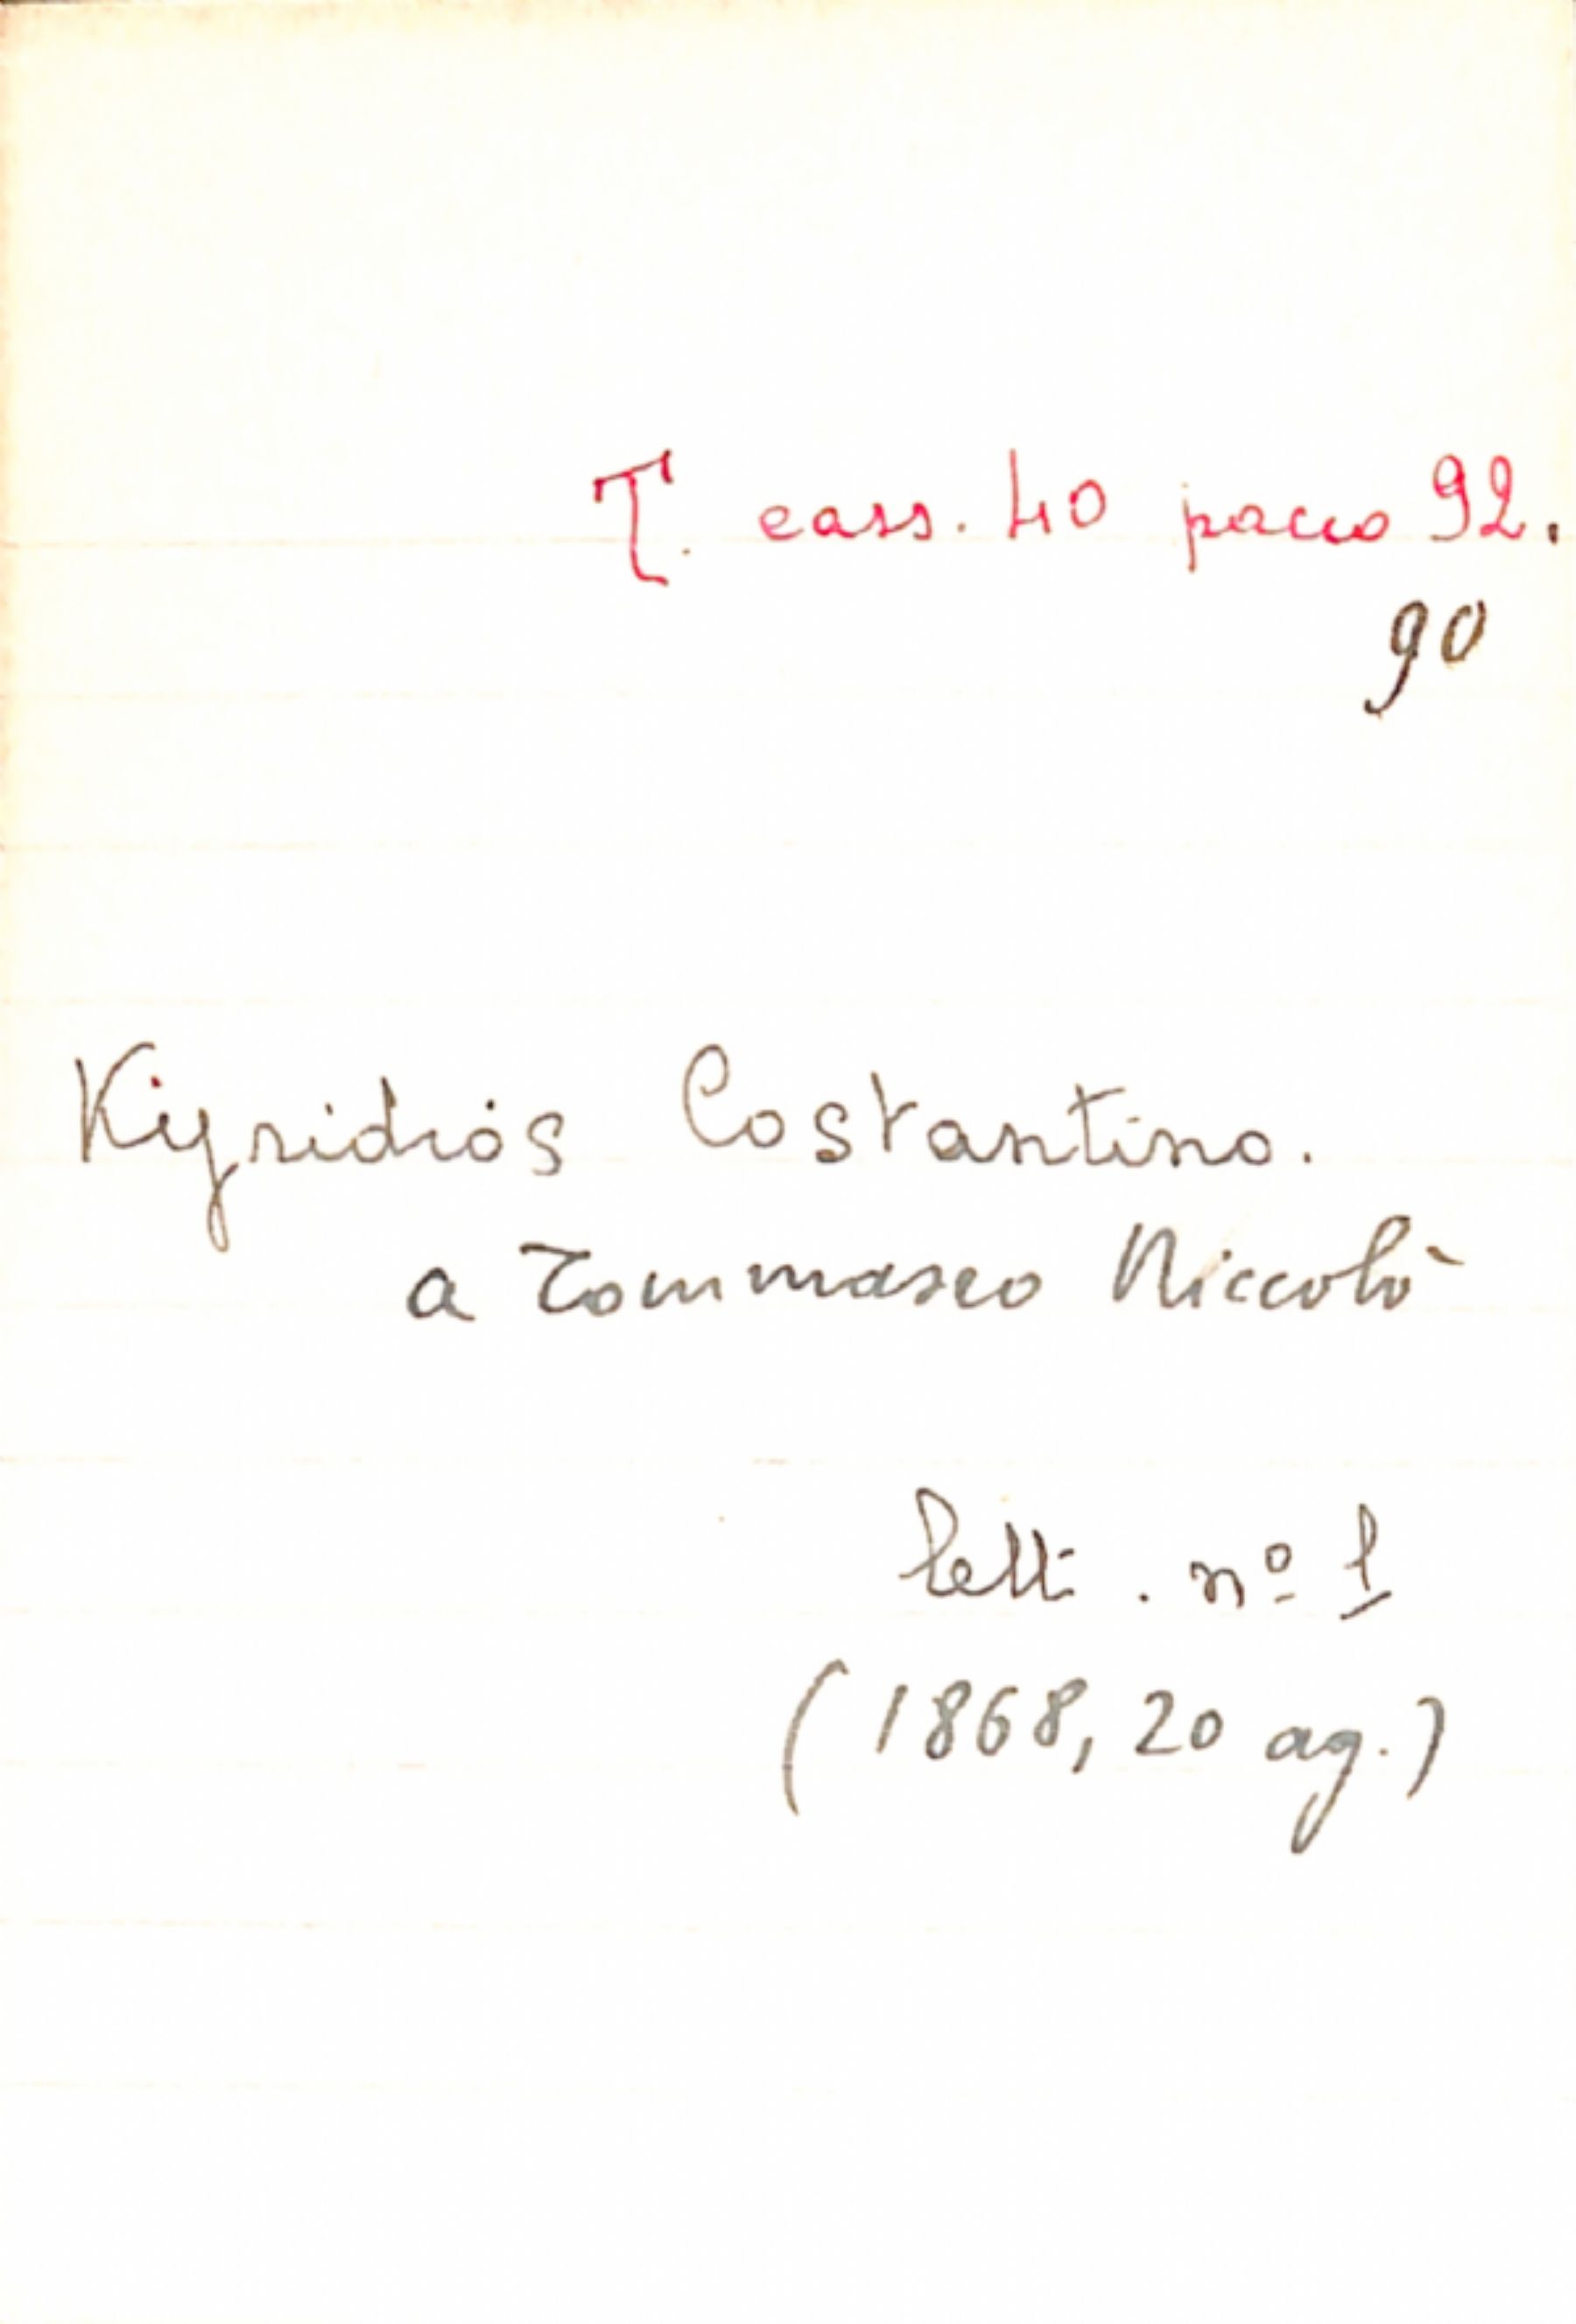 T. cass. 40 pacco 92.
90
Kyridiòs Costantino.
a Tommaseo Niccolò
lett. nº 1
(1868, 20 ag.)